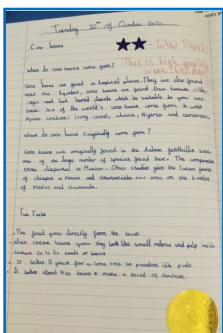 Tuesday 20th of October 2020
Coco beans
Wow Sana!
This is high quality
work. Well done!
where do coco beans come from?
Coco beans are found in tropical places. They are also found
near the Equator, Coco beans are found there because
and hot humid climate which is suitable to grow coco
bean. 70% of the world's coco beans come from 4 west
African countries: Ivory coast, Ghana, Nigeria and Cameroon.
where do coco beans originally come from?
Coco beans are originally found in the Andean foothills
one of the large number of species found here. The
dispersal in Mexico. Other studies give the Lacan jungle
of chiapas in Mexico and Usumacinta river area on the border
of Mexico and Guatemala.
Fun Facts
The fruit grows directly from the trunk.
When cocoa beans grow they look like small melons and pulp inside
contains 20 to 50 seeds or beans
It takes 5 years for a coco tree to produce it's pods.
It takes about 400 beans to make a pound of chocolate.